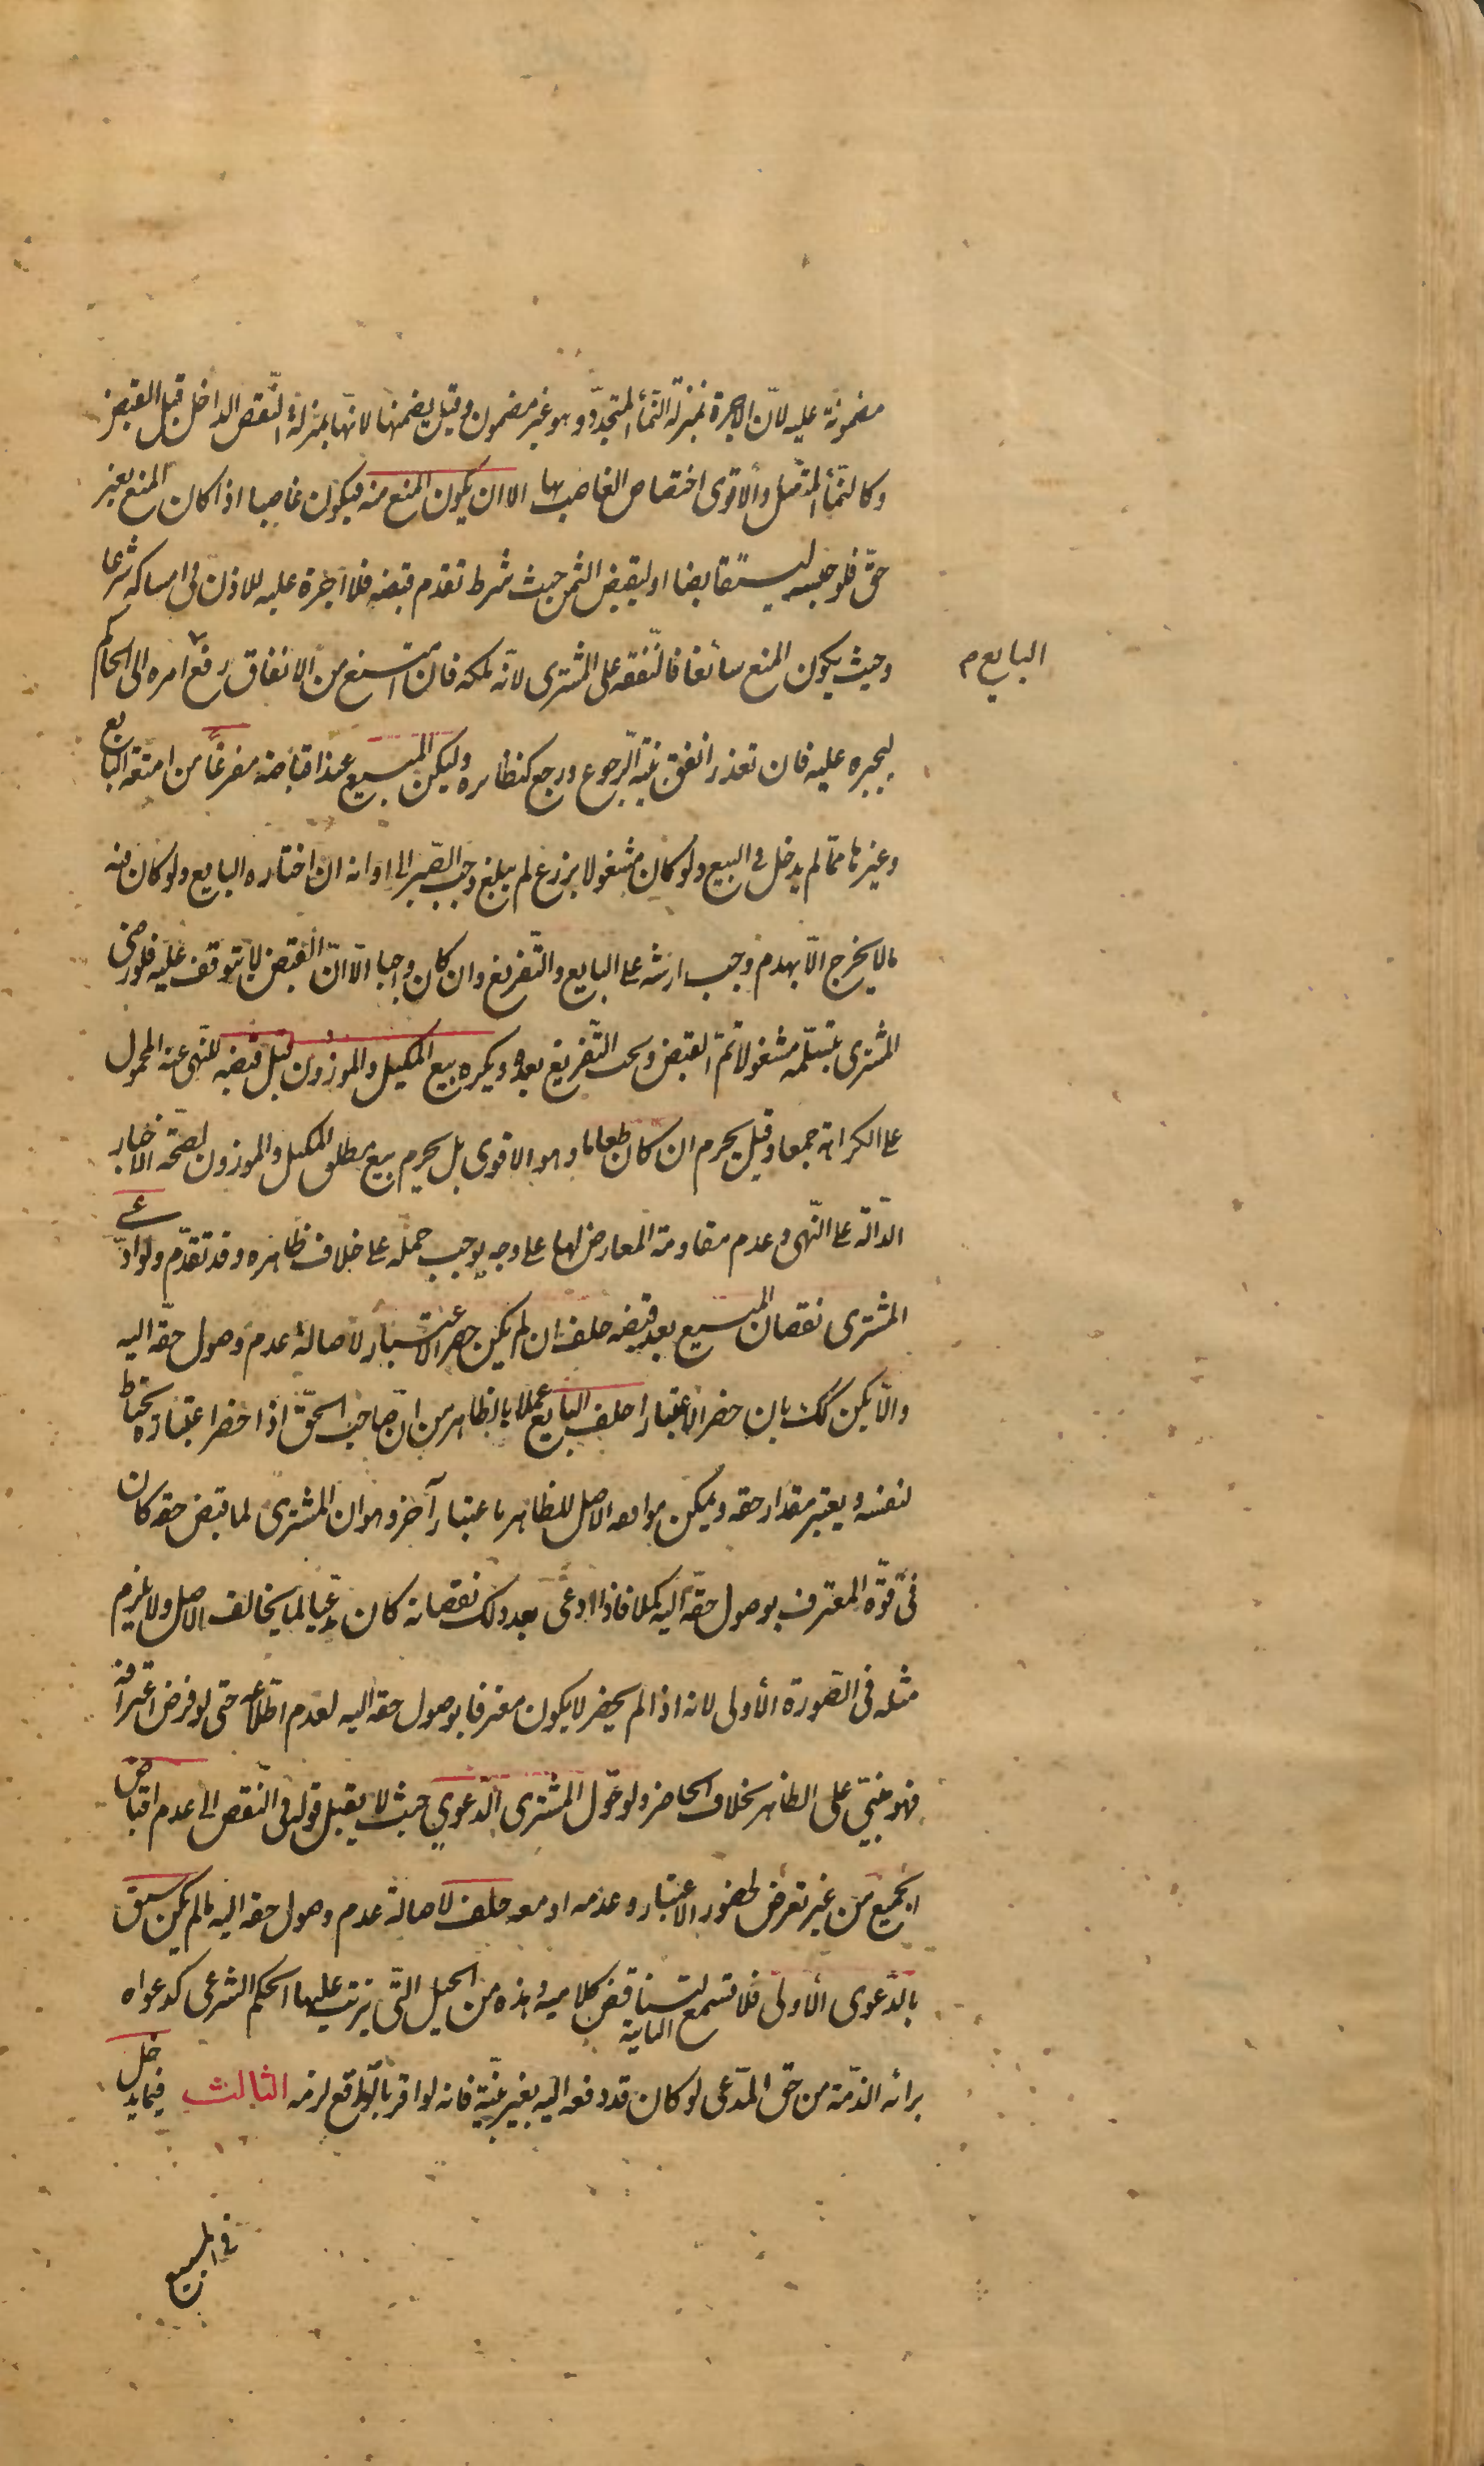 مضمونة عليه لانّ الاجرة بمنزلة النّمأ المتجدّد وهو غير مضمون وقيل يضمنها لانّها بمنزلة النّقص الداخل قبل القبض
وكالنّمأ المتّصل والاقوى اختصاص الغاصب بها الا ان يكون المنع منه فيكون غاصبا اذا كان المنع بغير
حقّ فلو حبسه ليتقابضا او ليقبض الثمن حيث شرط تقدم قبضه فلا اجرة عليه للاذن في امساكه شرعا
وحيث يكون المنع سائغا فالنّفقه على المشترى لانّه ملكه فان امتنع من الانفاق رفع امره الى الحاكم
البايع م
ليجبره عليه فان تعذر انفق بنيّة الرّجوع ورجع كنظائره وليكن المبيع عند اقباضه مفرغاً من امتعة البايع
وغيرها ممّا لم يدخل في البيع ولو كان مشغولا بزرع لم يبلغ وجب الصّبر الى اوانه ان اختاره البايع ولو كان فيه
مالا يخرج الّا بهدم وجب ارشه على البايع والتّفريغ وان كان واجبا الّا انّ القبض لا يتوقف عليه فلو رضى
المشترى بتسلّمه مشغولا تمّ القبض ويجب التّفريغ بعده ويكره بيع المكيل والموزون قبل قبضه للنّهى عنه المحمول
على الكراهة جمعا وقيل يحرم ان كان طعاما وهو الاقوى بل يحرم بيع مطلق المكيل والموزون لصحّة الاخبار
الدّالّة على النّهى وعدم مقاومة المعارض لها على وجه يوجب حمله على خلاف ظاهره وقد تقدّم ولو ادّعى
المشترى نقصان المبيع بعد قبضه حلف ان لم يكن حضر الاعتبار لاصالة عدم وصول حقّه اليه
والّا يكن كك بان حضر الاعتبار احلف البايع عملا بالظاهر من انّ صاحب الحقّ اذا حضر اعتباره يحتاط
لنفسه ويعتبر مقدار حقه ويمكن موافقه الاصل للظاهر باعتبار آخر وهو ان المشترى لما قبض حقه كان
فى قوّة المعترف بوصول حقّه اليه كملا فاذا ادعى بعد ذلك نقصانه كان مدّعيا لما يخالف الاصل ولا يلزم
مثله فى الصّورة الأولى لانه اذا لم يحضر لا يكون معترفا بوصول حقه اليه لعدم اطّلاعه حتى لو فرض اعترافه
فهو مبنيّ على الظاهر بخلاف الحاضر ولو حوّل المشترى الدّعوي حيث لا يقبل قوله في النّقص الى عدم اقباض
الجميع من غير تعرّض لحضور الاعتبار وعدمه او معه حلف لاصالة عدم وصول حقه اليه مالم يكن سبق
بالدّعوى الأولى فلا تسمع الثانية لتناقض كلاميه وهذه من الحيل التّى يترتب عليها الحكم الشرعى كدعواه
برائة الذّمّة من حقّ المدّعى لو كان قد دفعه اليه بغير بيّنة فانه لو اقر بالواقع لزمه الثالث فيما يدخل
فى المبيع